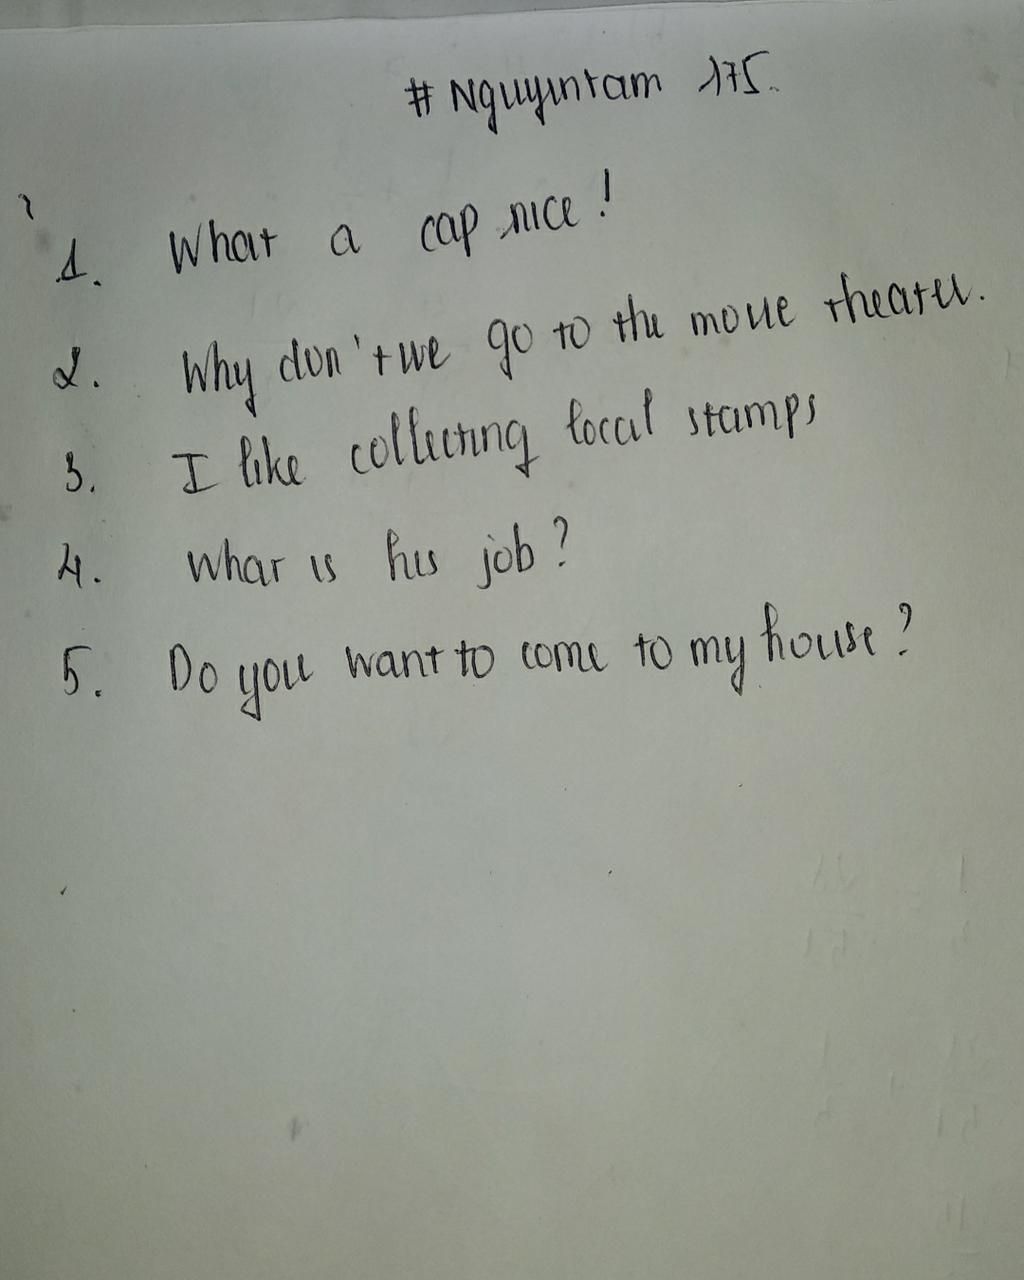 # Nguyentam 175.
1. What a cap nice!
2. Why don't we go to the movie theater.
3. I like collecting local stamps
4. What is his job?
5. Do you want to come to my house?